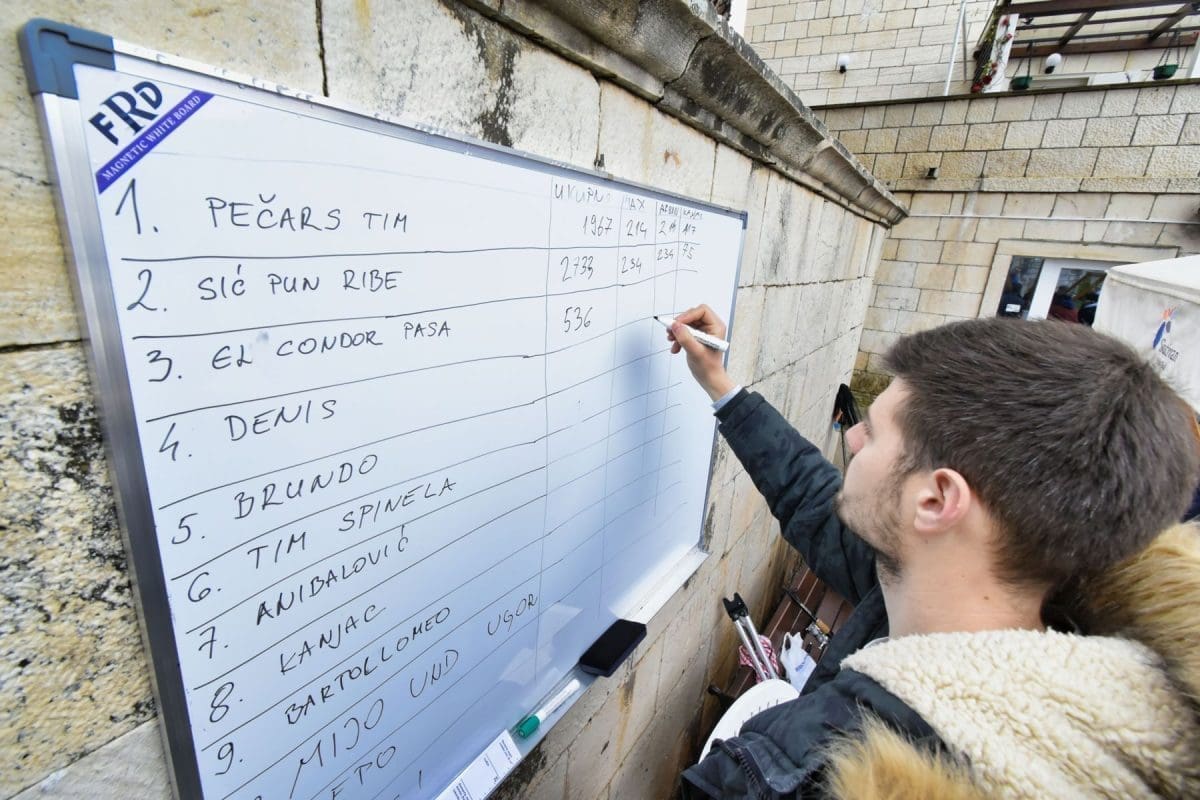 FRD
MAGNETIC WHITE BOARD
UKUPNO
1. PEČARS TIM 1967 214
2. SIĆ PUN RIBE 2733 234 234 75
3. EL CONDOR PASA 536
4. DENIS
5. BRUNDO
6. TIM SPINELA
7. ANIBALOVIĆ
8. KANJAC
9. BARTOLLOMEO
MIJO UND UGOR